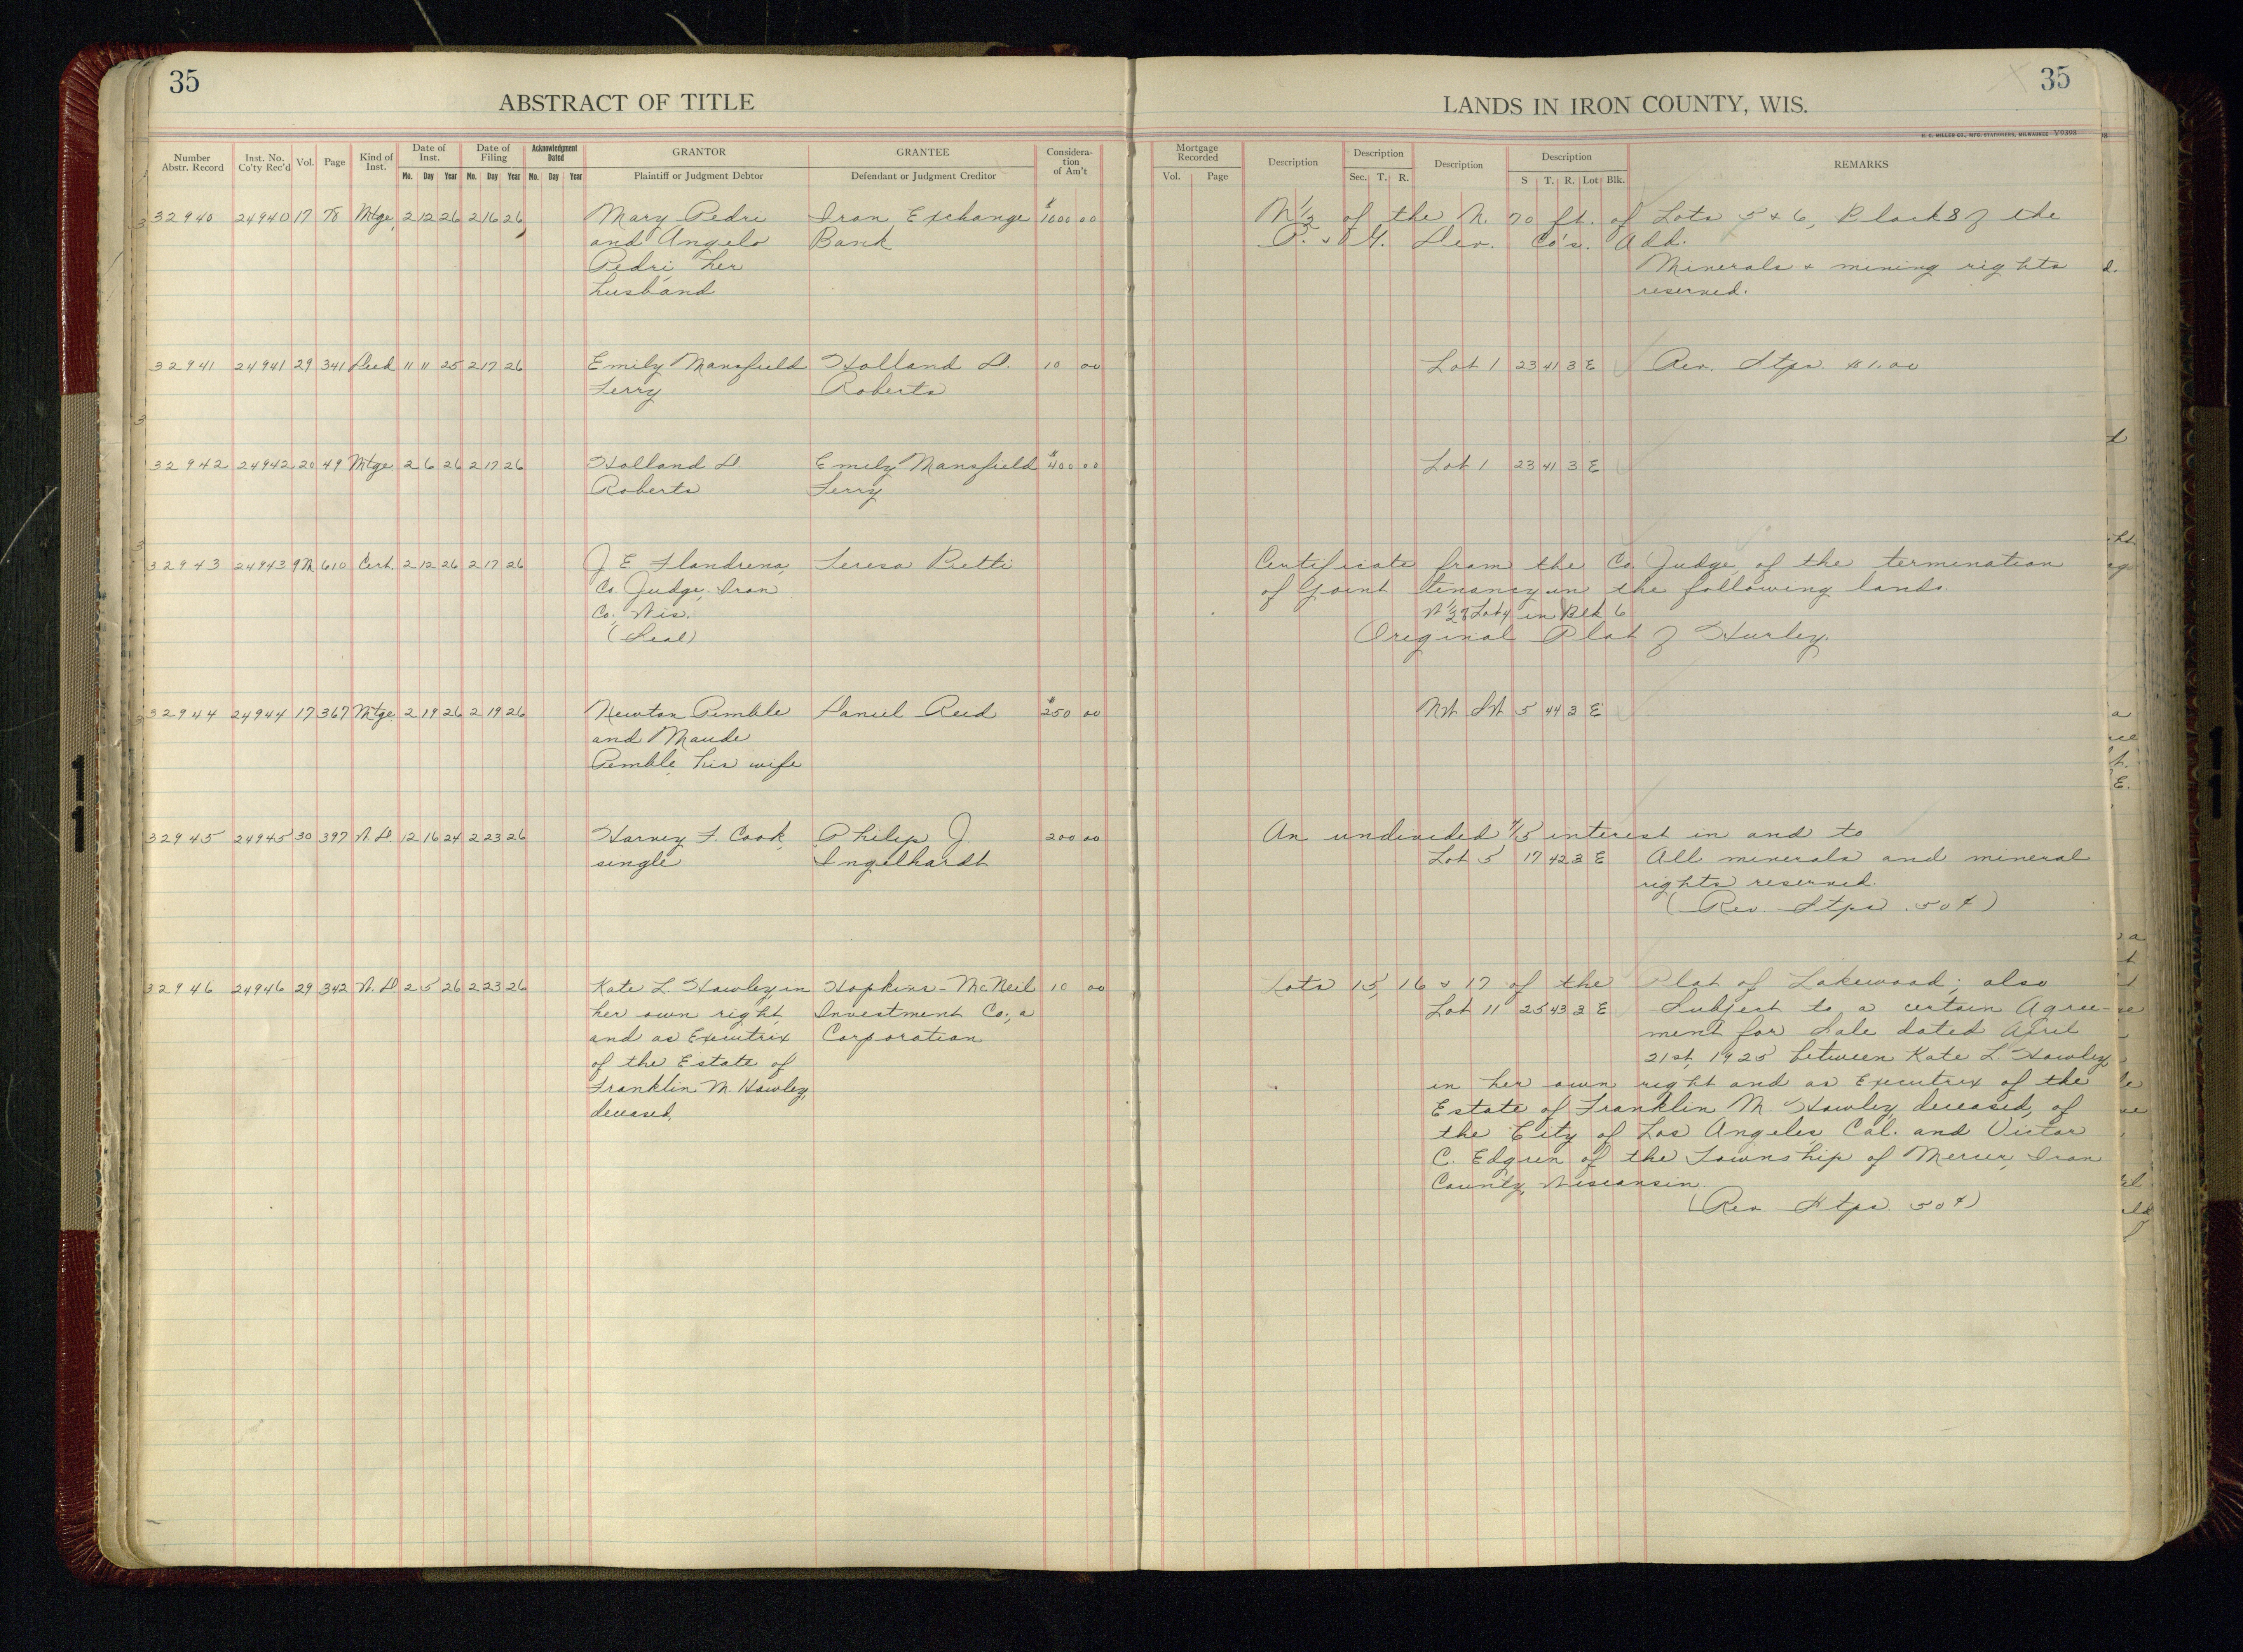 35
35
ABSTRACT OF TITLE
LANDS IN IRON COUNTY, WIS.
H. C. MILLER CO., MFG. STATIONERS, MILWAUKEE V9393
Number Abstr. Record | Inst. No. Co'ty Rec'd | Vol. | Page | Kind of Inst. | Date of Inst. Mo. Day Year | Date of Filing Mo. Day Year | Acknowledgment Dated Mo. Day Year | GRANTOR Plaintiff or Judgment Debtor | GRANTEE Defendant or Judgment Creditor | Consideration of Am't
Mortgage Recorded Vol. Page | Description | Description Sec. T. R. | Description | Description S T. R. Lot Blk. | REMARKS
32940 24940 17 78 Mtge. 2 12 26 2 16 26 Mary Pedri Iron Exchange $1000 00 N 1/2 of the N. 70 ft. of Lots 5 & 6, Block 8 of the
and Angelo Bank P. & G. Dev. Co's. Add.
Pedri, her Minerals & mining rights
husband reserved.
32941 24941 29 341 Deed 11 11 25 2 17 26 Emily Mansfield Holland D. 10 00 Lot 1 23 41 3 E Rev. Stps. $1.00
Terry Roberts
32942 24942 20 49 Mtge 2 6 26 2 17 26 Holland D. Emily Mansfield $400 00 Lot 1 23 41 3 E
Roberts Terry
32943 24943 9M 610 Cert. 2 12 26 2 17 26 J. E. Flandrena, Teresa Betti Certificate from the Co. Judge, of the termination
Co. Judge, Iron of joint tenancy in the following lands.
Co., Wis. W 1/2 of Lot 4 in Blk 6
(Seal) Original Plat of Hurley.
32944 24944 17 367 Mtge 2 19 26 2 19 26 Newton Pemble Daniel Reid $250 00 NW SW 5 44 3 E
and Maude
Pemble, his wife
32945 24945 30 397 W.D. 12 16 24 2 23 26 Harvey F. Cook, Philip J. 200 00 An undivided 1/5 interest in and to
single Ingelhardt Lot 5 17 42 3 E All minerals and mineral
rights reserved.
(Rev. Stps .50¢)
32946 24946 29 342 W.D. 2 5 26 2 23 26 Kate L. Hawley, in Hopkins-McNeil 10 00 Lots 15, 16 & 17 of the Plat of Lakewood; also
her own right, Investment Co., a Lot 11 25 43 3 E Subject to a certain Agree-
and as Executrix Corporation ment for Sale dated April
of the Estate of 21st, 1925 between Kate L. Hawley
Franklin M. Hawley, in her own right and as Executrix of the
deceased, Estate of Franklin M. Hawley, deceased, of
the City of Los Angeles, Cal. and Victor
C. Edgren of the Township of Mercer, Iron
County, Wisconsin.
(Rev. Stps. 50¢)